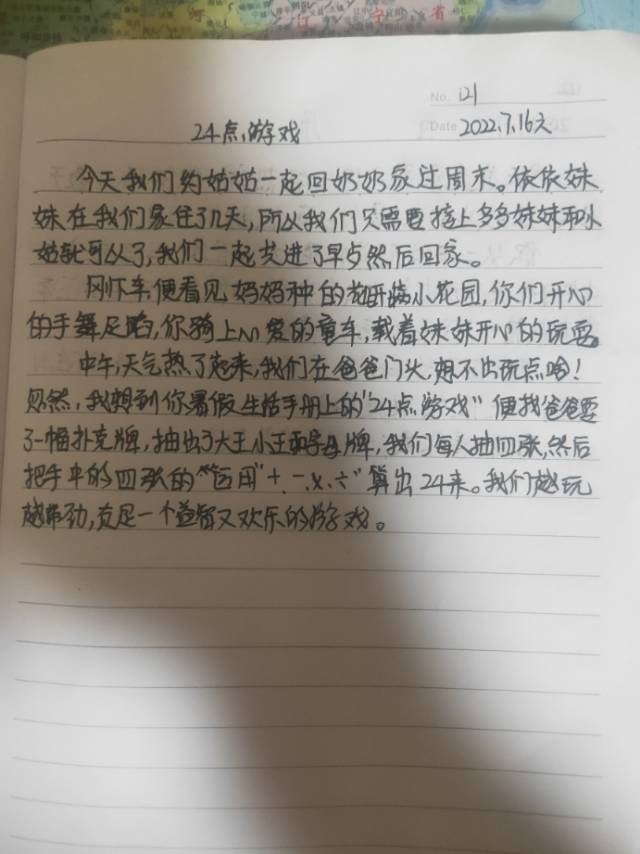 辽宁省
No. 121
24点游戏
Date 2022.7.16六
今天我们约姑姑一起回奶奶家过周末。依依妹
妹在我们家住了几天,所以我们只需要接上多多妹妹和小
姑就可以了,我们一起共进了早点然后回家。
刚下车,便看见妈妈种的 小花园,你们开心
的手舞足蹈,你骑上心爱的童车,载着妹妹开心的玩耍。
中午,天气热了起来,我们在爸爸门头,想不出玩点啥!
忽然,我想到你暑假生活手册上的“24点游戏”便找爸爸要
了一幅扑克牌,抽出了大王小王 字母牌,我们每人抽四张,然后
把手中的四张的 “运用“+、-、x、÷”算出24来。我们越玩
越带劲,真是一个益智又欢乐的游戏。